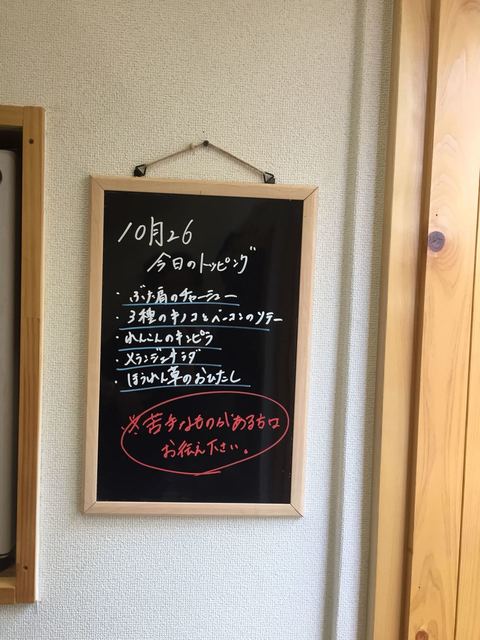 10月26
今日のトッピング
・ぶた肩のチャーシュー
・3種のキノコとベーコンのソテー
・れんこんのキンピラ
・メランジェサラダ
・ほうれん草のおひたし
※苦手なものがある方は
お伝え下さい。